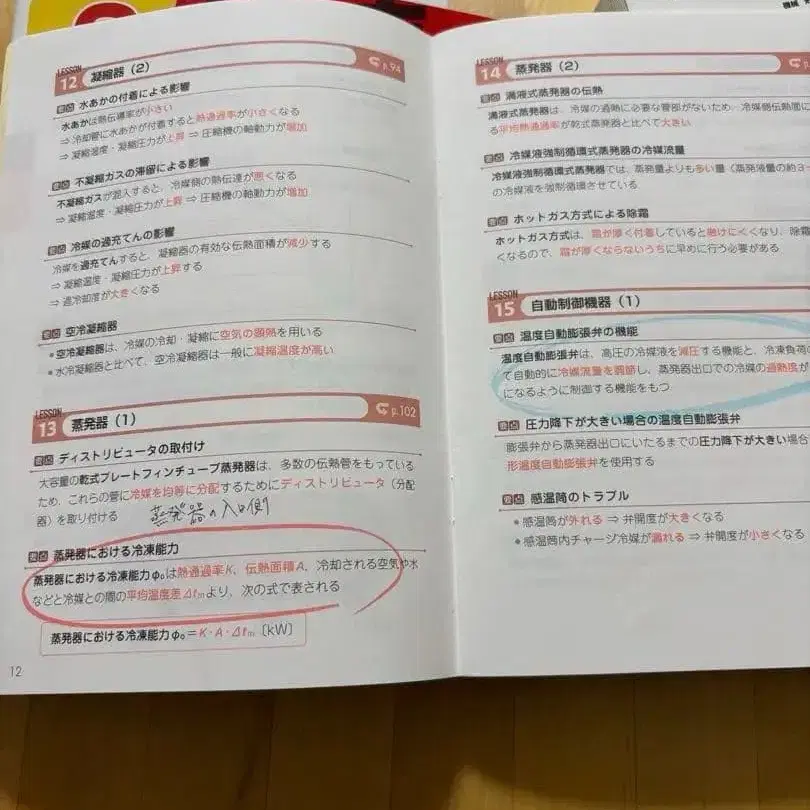 LESSON
12 凝縮器(2) p.94
要点 水あかの付着による影響
水あかは熱伝導率が小さい
⇒ 冷却管に水あかが付着すると熱通過率が小さくなる
⇒ 凝縮温度・凝縮圧力が上昇 ⇒ 圧縮機の軸動力が増加
要点 不凝縮ガスの滞留による影響
不凝縮ガスが混入すると、冷媒側の熱伝達が悪くなる
⇒ 凝縮温度・凝縮圧力が上昇 ⇒ 圧縮機の軸動力が増加
要点 冷媒の過充てんの影響
冷媒を過充てんすると、凝縮器の有効な伝熱面積が減少する
⇒ 凝縮温度・凝縮圧力が上昇する
⇒ 過冷却度が大きくなる
要点 空冷凝縮器
●空冷凝縮器は、冷媒の冷却・凝縮に空気の顕熱を用いる
●水冷凝縮器と比べて、空冷凝縮器は一般に凝縮温度が高い
LESSON
13 蒸発器(1) p.102
要点 ディストリビュータの取付け
大容量の乾式プレートフィンチューブ蒸発器は、多数の伝熱管をもっている
ため、これらの管に冷媒を均等に分配するためにディストリビュータ(分配
器)を取り付ける 蒸発器の入口側
要点 蒸発器における冷凍能力
蒸発器における冷凍能力Φ₀は熱通過率K、伝熱面積A、冷却される空気や水
などと冷媒との間の平均温度差Δtₘより、次の式で表される
蒸発器における冷凍能力Φ₀=K・A・Δtₘ〔kW〕
12
LESSON
14 蒸発器(2) p.
要点 満液式蒸発器の伝熱
満液式蒸発器は、冷媒の過熱に必要な管部がないため、冷媒側伝熱面に
る平均熱通過率が乾式蒸発器と比べて大きい
要点 冷媒液強制循環式蒸発器の冷媒流量
冷媒液強制循環式蒸発器では、蒸発量よりも多い量(蒸発液量の約3~
の冷媒液を強制循環させている
要点 ホットガス方式による除霜
ホットガス方式は、霜が厚く付着していると融けにくくなり、除霜
くなるので、霜が厚くならないうちに早めに行う必要がある
LESSON
15 自動制御機器(1)
要点 温度自動膨張弁の機能
温度自動膨張弁は、高圧の冷媒液を減圧する機能と、冷凍負荷の
て自動的に冷媒流量を調節し、蒸発器出口での冷媒の過熱度が
になるように制御する機能をもつ
要点 圧力降下が大きい場合の温度自動膨張弁
膨張弁から蒸発器出口にいたるまでの圧力降下が大きい場合
形温度自動膨張弁を使用する
要点 感温筒のトラブル
●感温筒が外れる ⇒ 弁開度が大きくなる
●感温筒内チャージ冷媒が漏れる ⇒ 弁開度が小さくなる